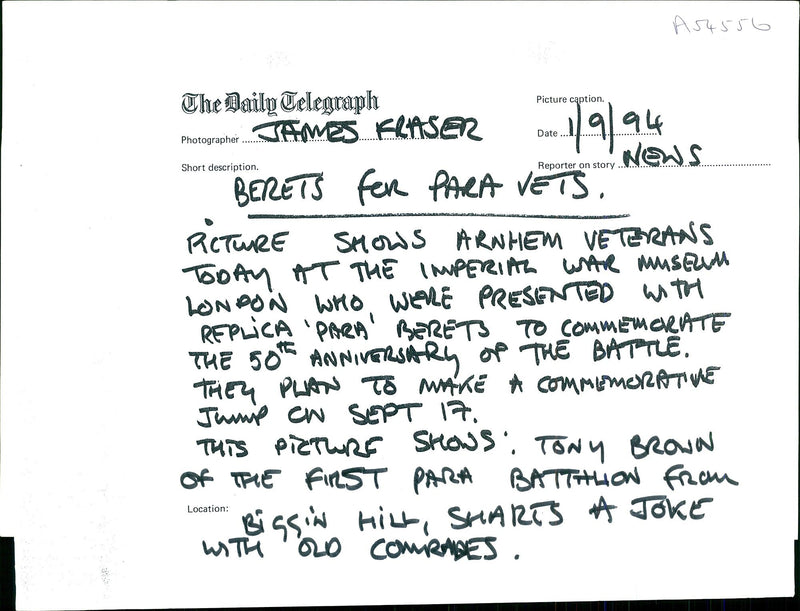 A54556
The Daily Telegraph
Picture caption.
Photographer JAMES FRASER
Date 1/9/94
Short description.
Reporter on story NEWS
BERETS FOR PARA VETS.
PICTURE SHOWS ARNHEM VETERANS
TODAY AT THE IMPERIAL WAR MUSEUM
LONDON WHO WERE PRESENTED WITH
REPLICA 'PARA' BERETS TO COMMEMORATE
THE 50TH ANNIVERSARY OF THE BATTLE.
THEY PLAN TO MAKE A COMMEMORATIVE
JUMP ON SEPT 17.
THIS PICTURE SHOWS: TONY BROWN
OF THE FIRST PARA BATTALION FROM
Location: BIGGIN HILL, SHARES A JOKE
WITH OLD COMRADES.